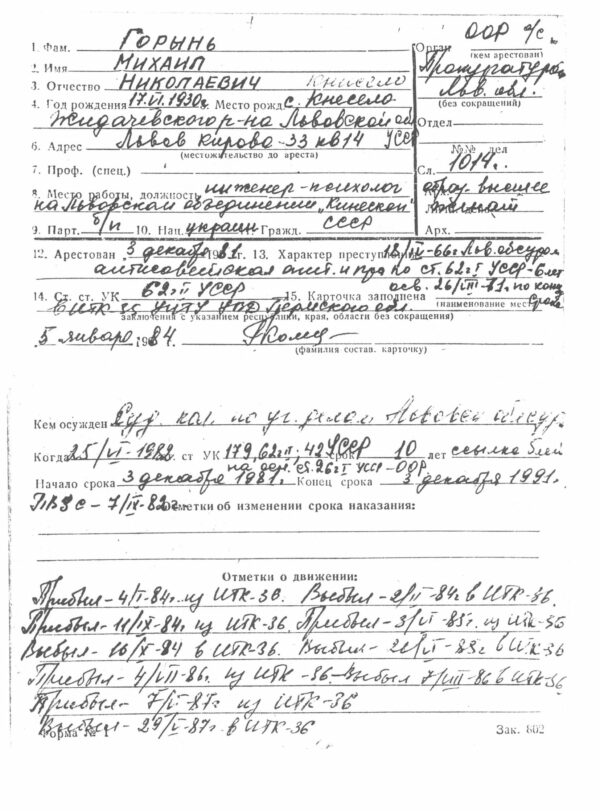 1. Фам. Горынь
ООР о/с
Орган
(кем арестован)
2. Имя Михаил
Прокуратурой
3. Отчество Николаевич Книсело
Льв. обл.
(без сокращений)
4. Год рождения 17.VI.1930г. Место рожд с. Кнесело
Жидачевского р-на Львовской об
Отдел
6. Адрес Львов Кирова-33 кв 14 УССР
(местожительство до ареста)
№№ дел
7. Проф. (спец.)
Сл. 1014.
8. Место работы, должность инженер-психолог
образ. высшее
на Львовском объединении „Кинескоп"
женат
9. Парт. б/п 10. Нац. украин Гражд. СССР
Арх.
12. Арестован 3 декабря 1981 г. 13. Характер преступления 18/IV-66г Льв. облсудом
антисоветская агит. и проп по ст. 62 ч I УССР-6лет
осв. 26/ по конц
14. Ст. ст. УК 62 ч II УССР 15. Карточка заполнена срока
(наименование мес
в ИТК УИТУ УВД Пермской обл.
заключения с указанием республики, края, области без сокращений)
5 января 1984
(фамилия состав. карточку)
Кем осужден Суд. кол. по уг. делам Львовск облсуд
Когда 25/VI-1982 по ст УК 179, 62 ч II, 42 УССР срок 10 лет ссылка 5 лет
на осн. ст. 26 ч I УССР-ООР
Начало срока 3 декабря 1981. Конец срока 3 декабря 1991.
7/IX-82г. Отметки об изменении срока наказания:
Отметки о движении:
Прибыл-4/I-84г. из ИТК-36. Выбыл-2/II-84г в ИТК-36.
Прибыл-11/IX-84г. из ИТК-36. Прибыл-3/VI-85г. из ИТК-36
Выбыл-16/X-84 в ИТК-36. Выбыл-21/VI-85г в ИТК-36
Прибыл-4/VII-86г. из ИТК-36-Выбыл 7/VIII-86 в ИТК-36
Прибыл-7/I-87г из ИТК-36
Выбыл-29/I-87г. в ИТК-36
Форма № 1 Зак. 802